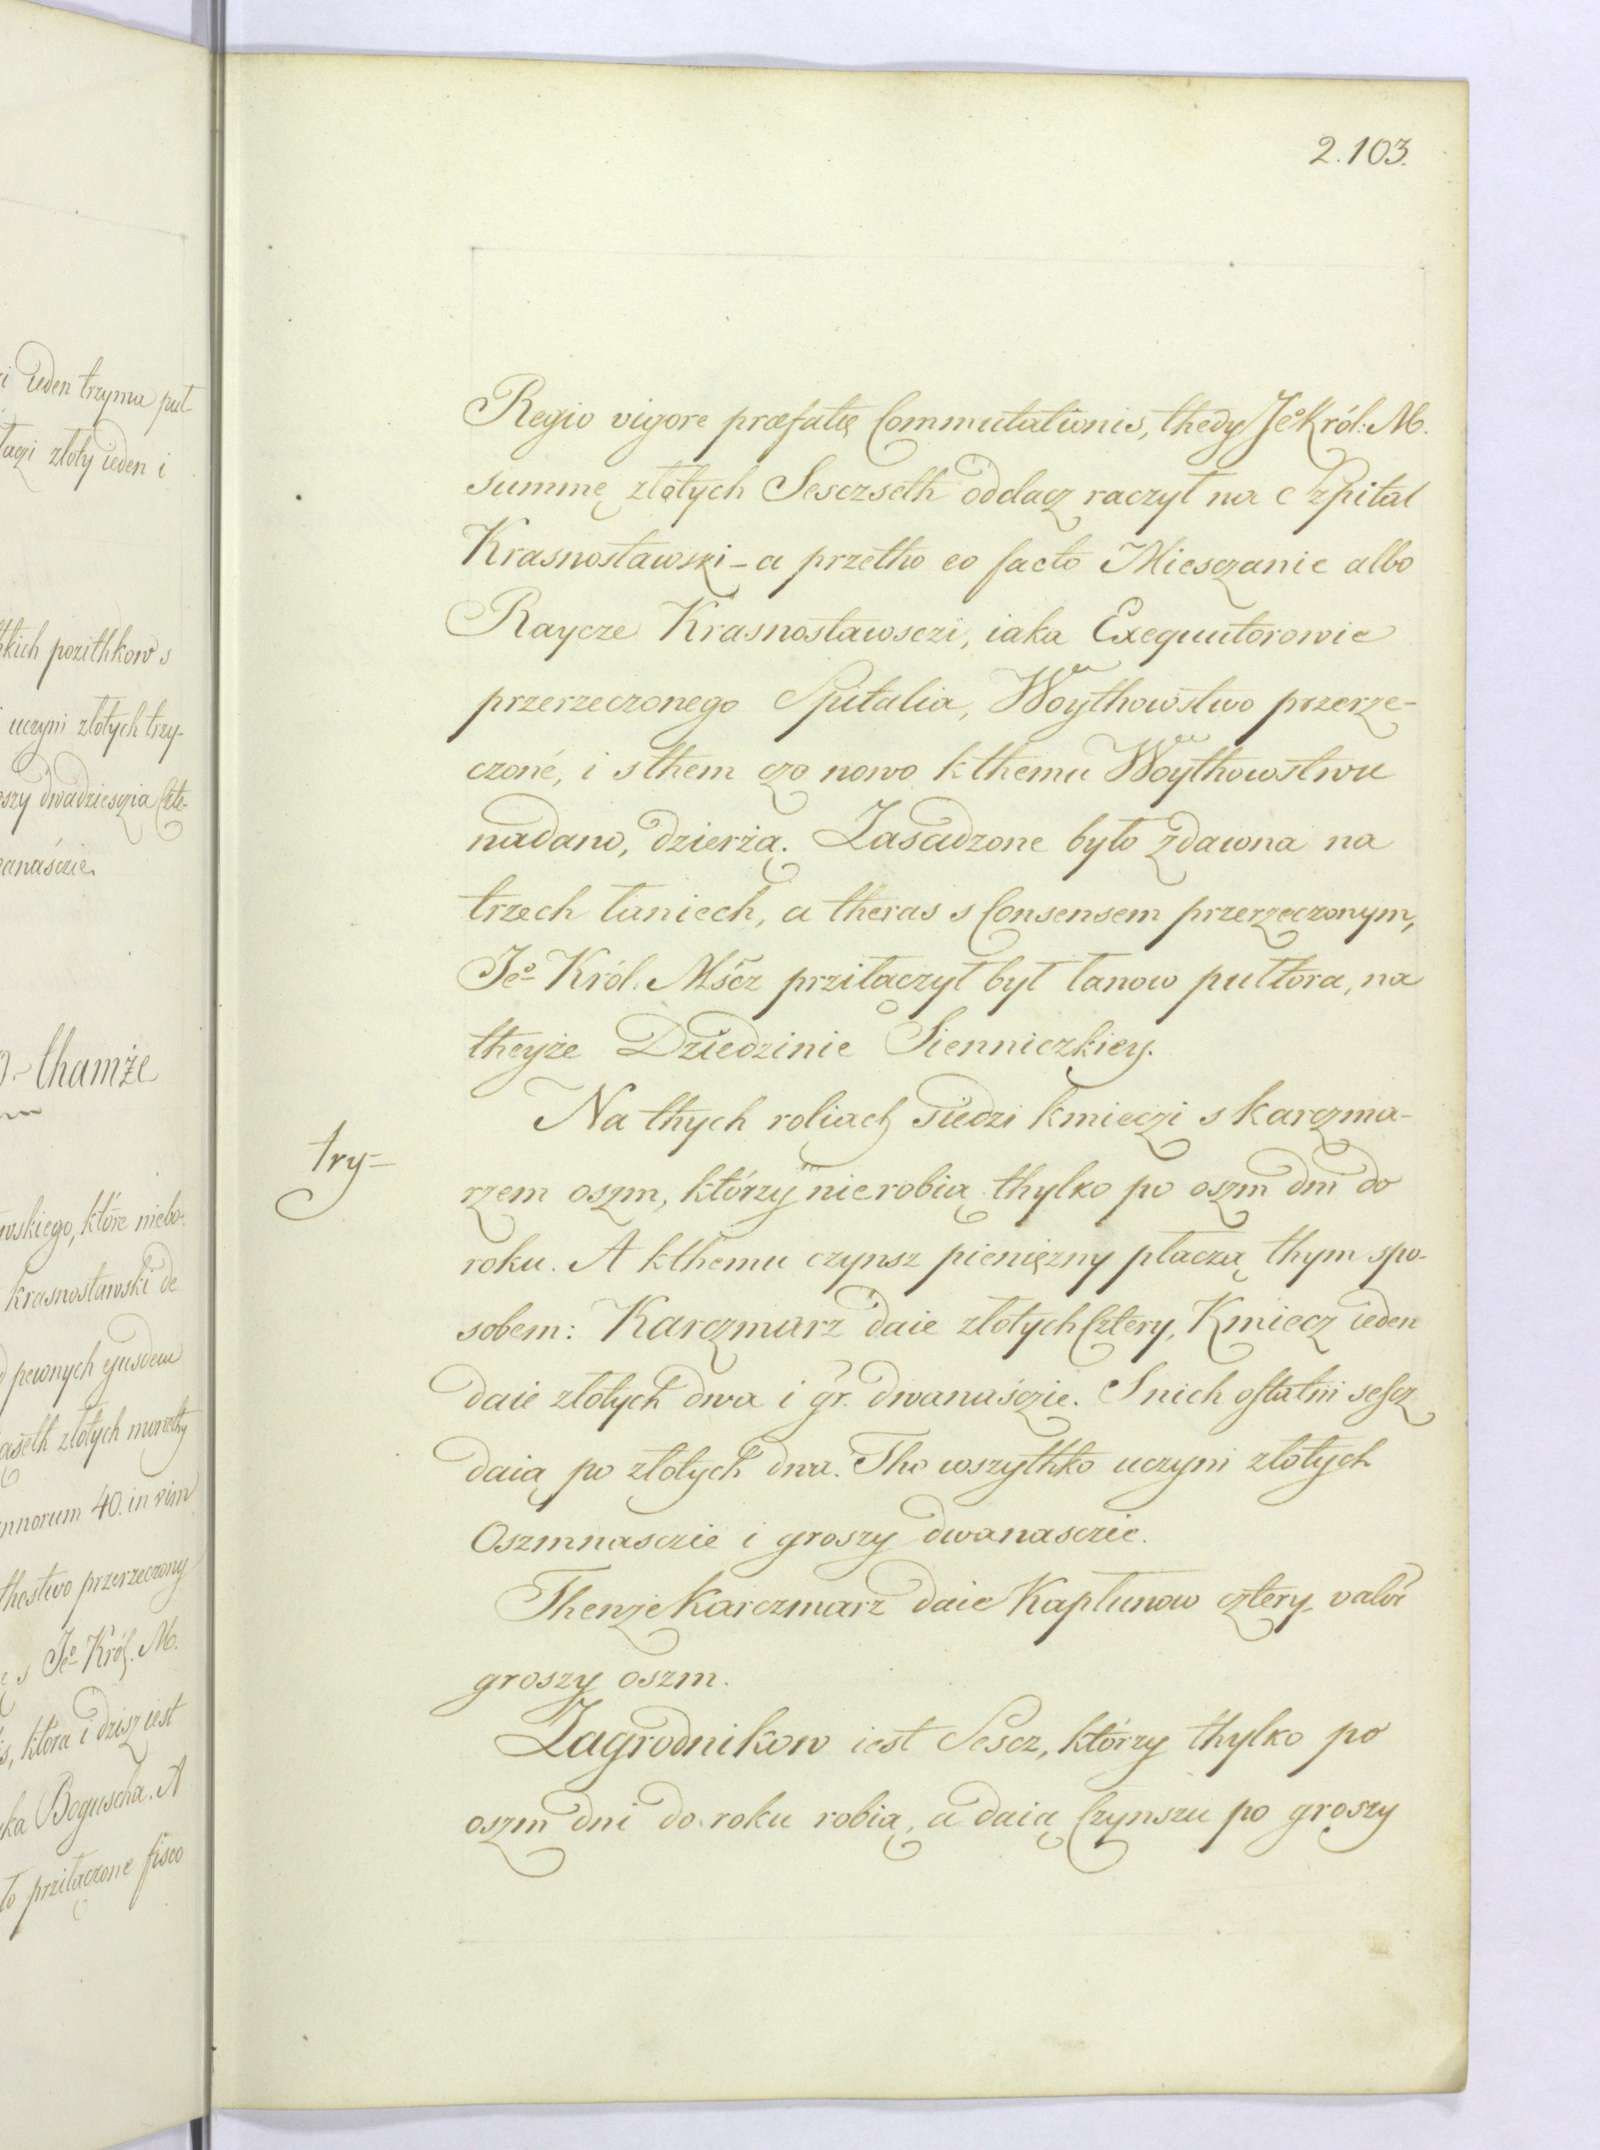 2.103.
Regio vigore præfatę Commutationis, thedy Jeº Król: M.
summę złotych Sesczseth oddacz raczył na Szpital
Krasnostawski - a przetho eo facto Miesczanie albo
Raycze Krasnostawsczi, iaka Exequutorowie
przerzeczonego Spitalia, Woÿthowstwo przerze-
czoné, i sthem czo nowo kthemu Woÿthowstwu
nadano, dzierżą. Zasadzone było zdawna na
trzech łaniech, a theras s Consensem przerzeczonym,
Jeº Król. Mścz prziłączył był łanow pułtora, na
theyże Dziedzinie Sienniczkiey.
Na thych roliach siedzi kmieczi s karczma-
try-
rzem oszm, którzÿ nierobią thylko po oszm dni do
roku. A kthemu czynsz pieniężny płaczą thym spo-
sobem: Karczmarz daie złotych Cztery, Kmiecz ieden
daie złotych dwa i gr. dwanaśczie. S nich ostatni sescz
daią po złotych dwa. Tho wszythko uczyni złotych
Oszmnasczie i groszy dwanasczie.
Thenże karczmarz daie Kapłunow cztery, valor
groszy oszm.
Zagrodnikow iest Sescz, którzy thylko po
oszm dni do roku robią, a daią Czynszu po groszy
i ieden trzyma puł
złoty ieden i
pozithkow s
uczyni złotych trzy-
dwadziesczia Czte-
thamże
które niebo-
krasnostawski de
pewnych ejusdem
złotych monethy
annorum 40. in vim
przerzeczony
s Jeº Król. M.
która i dzisz iest
Boguscha. A
przłączone fisco